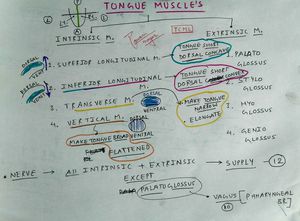 TONGUE MUSCLE'S
INTRINSIC M.
EXTRINSIC M.
DORSAL
VENT
1. SUPERIOR LONGITUDINAL M.
TONGUE SHORT
DORSAL CONCAVE
1. PALATO
GLOSSUS
DORSAL
VENT
2. INFERIOR LONGITUDINAL
TONGUE SHORT
DORSAL CONVEX
2. STYLO
GLOSSUS
3. TRANSVERSE M.
DORSAL
VENTRAL
MAKE TONGUE
NARROW
ELONGATE
3. HYO
GLOSSUS
4. VERTICAL M.
DORSAL
VENTRAL
MAKE TONGUE BROAD
FLATTENED
4. GENIO
GLOSSUS
NERVE → All INTRINSIC + EXTRINSIC → SUPPLY - 12
EXCEPT
PALATOGLOSSUS
VAGUS [PHARYNGEAL
10
BR]